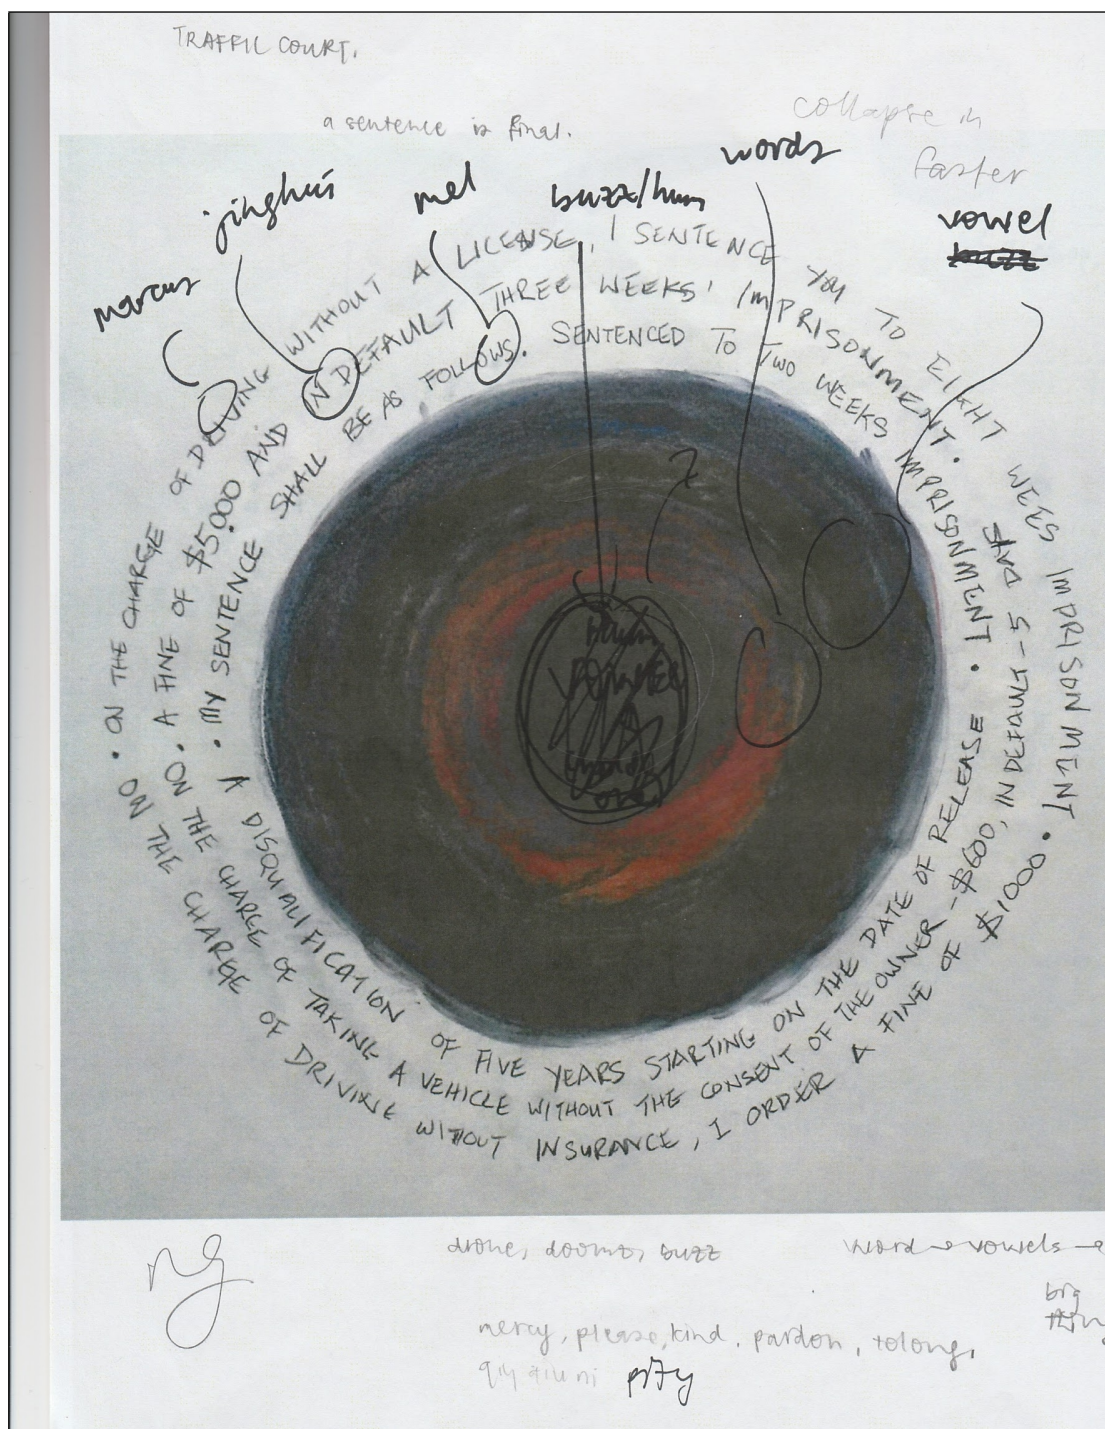 TRAFFIC COURT.
a sentence is final.
collapse in
faster
words
buzz/hum
mel
jinghui
marcus
vowel
• ON THE CHARGE OF DRIVING WITHOUT A LICENSE, I SENTENCE YOU TO EIGHT WEEKS IMPRISONMENT •
ON THE CHARGE OF DRIVING WITHOUT INSURANCE, I ORDER A FINE OF $1000 •
• A FINE OF $5000 AND IN DEFAULT THREE WEEKS' IMPRISONMENT •
ON THE CHARGE OF TAKING A VEHICLE WITHOUT THE CONSENT OF THE OWNER - $600, IN DEFAULT - 5 DAYS
• MY SENTENCE SHALL BE AS FOLLOWS. SENTENCED TO TWO WEEKS IMPRISONMENT •
A DISQUALIFICATION OF FIVE YEARS STARTING ON THE DATE OF RELEASE
?
ng
drone, doomz, buzz
word → vowels →
big
mercy, please, kind, pardon, tolong,
pity